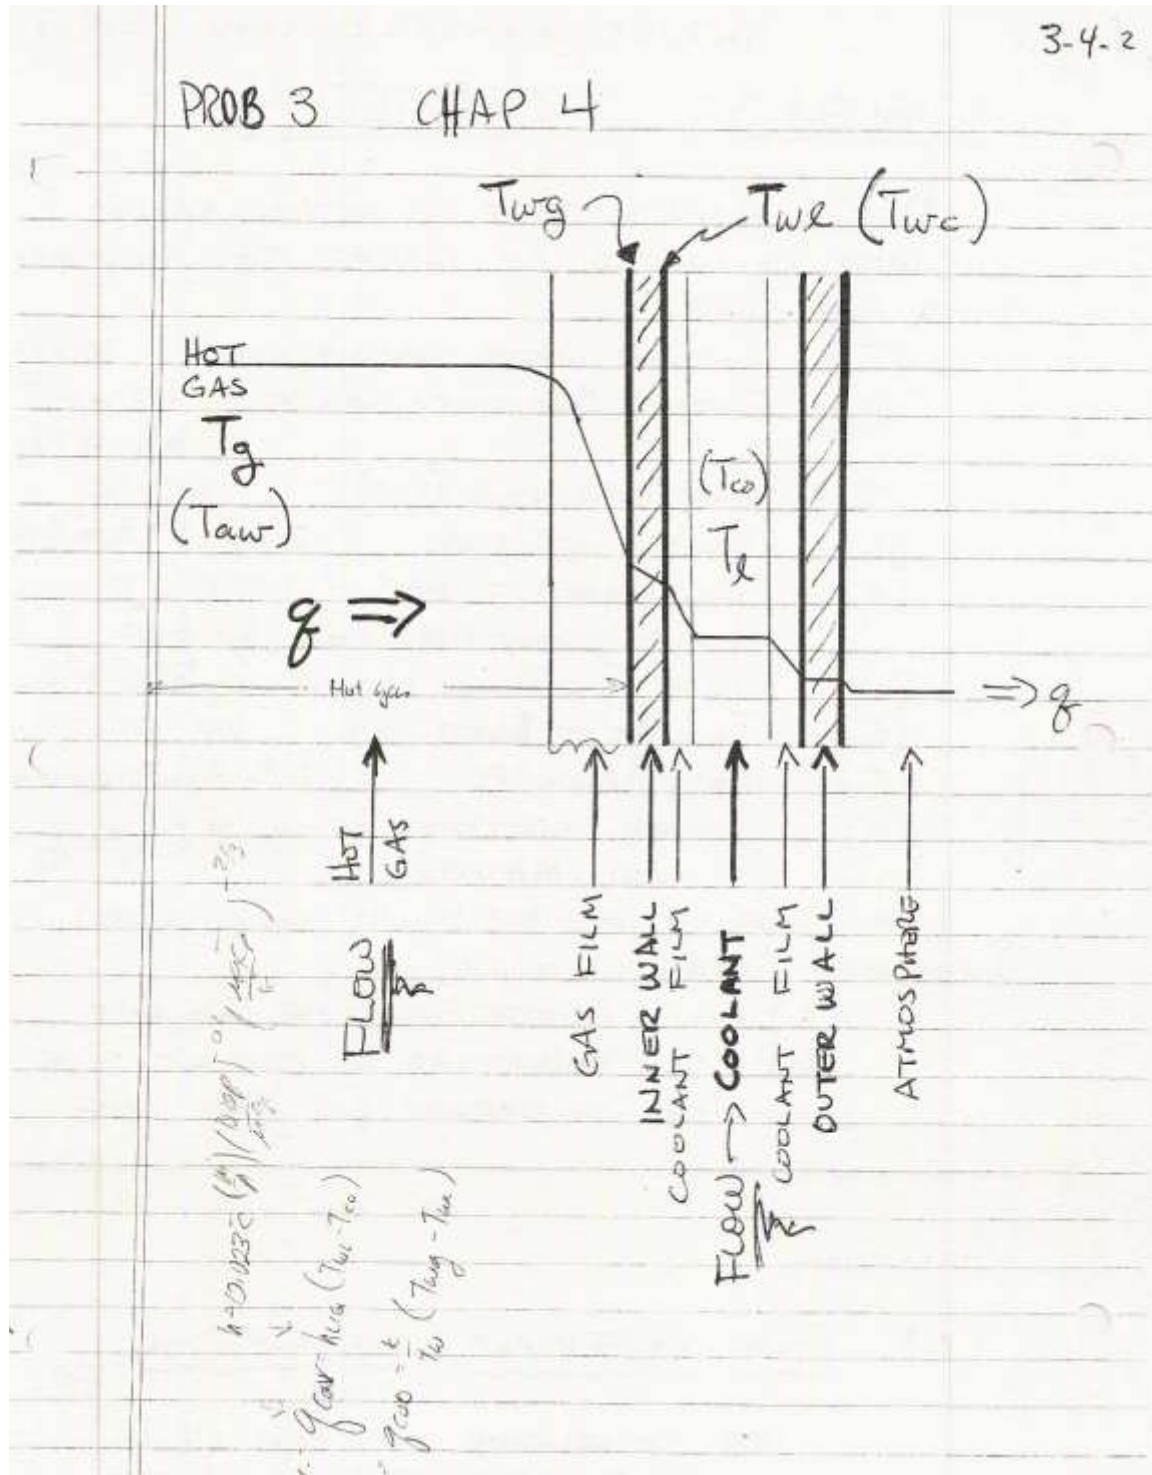 3-4-2
PROB 3 CHAP 4
Twg
Twl (Twc)
HOT
GAS
Tg
(Taw)
(Tco)
Tl
q ⇒
Hot gas
⇒ q
HOT
GAS
FLOW
GAS FILM
INNER WALL
COOLANT FILM
FLOW → COOLANT
COOLANT FILM
OUTER WALL
ATMOSPHERE
h=0.023